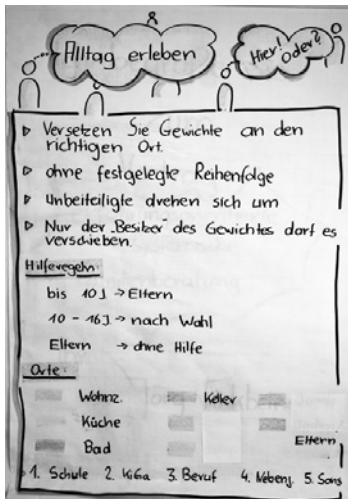 Alltag erleben
Hier! oder?
▷ Versetzen Sie Gewichte an den
richtigen Ort.
▷ ohne festgelegte Reihenfolge
▷ Unbeteiligte drehen sich um
▷ Nur der "Besitzer" des Gewichtes darf es
verschieben.
Hilferegeln:
bis 10J → Eltern
10 - 16J → nach Wahl
Eltern → ohne Hilfe
Orte:
Wohnz. Keller
Küche
Bad Eltern
1. Schule 2. KiGa 3. Beruf 4. Nebenj. 5. Sons